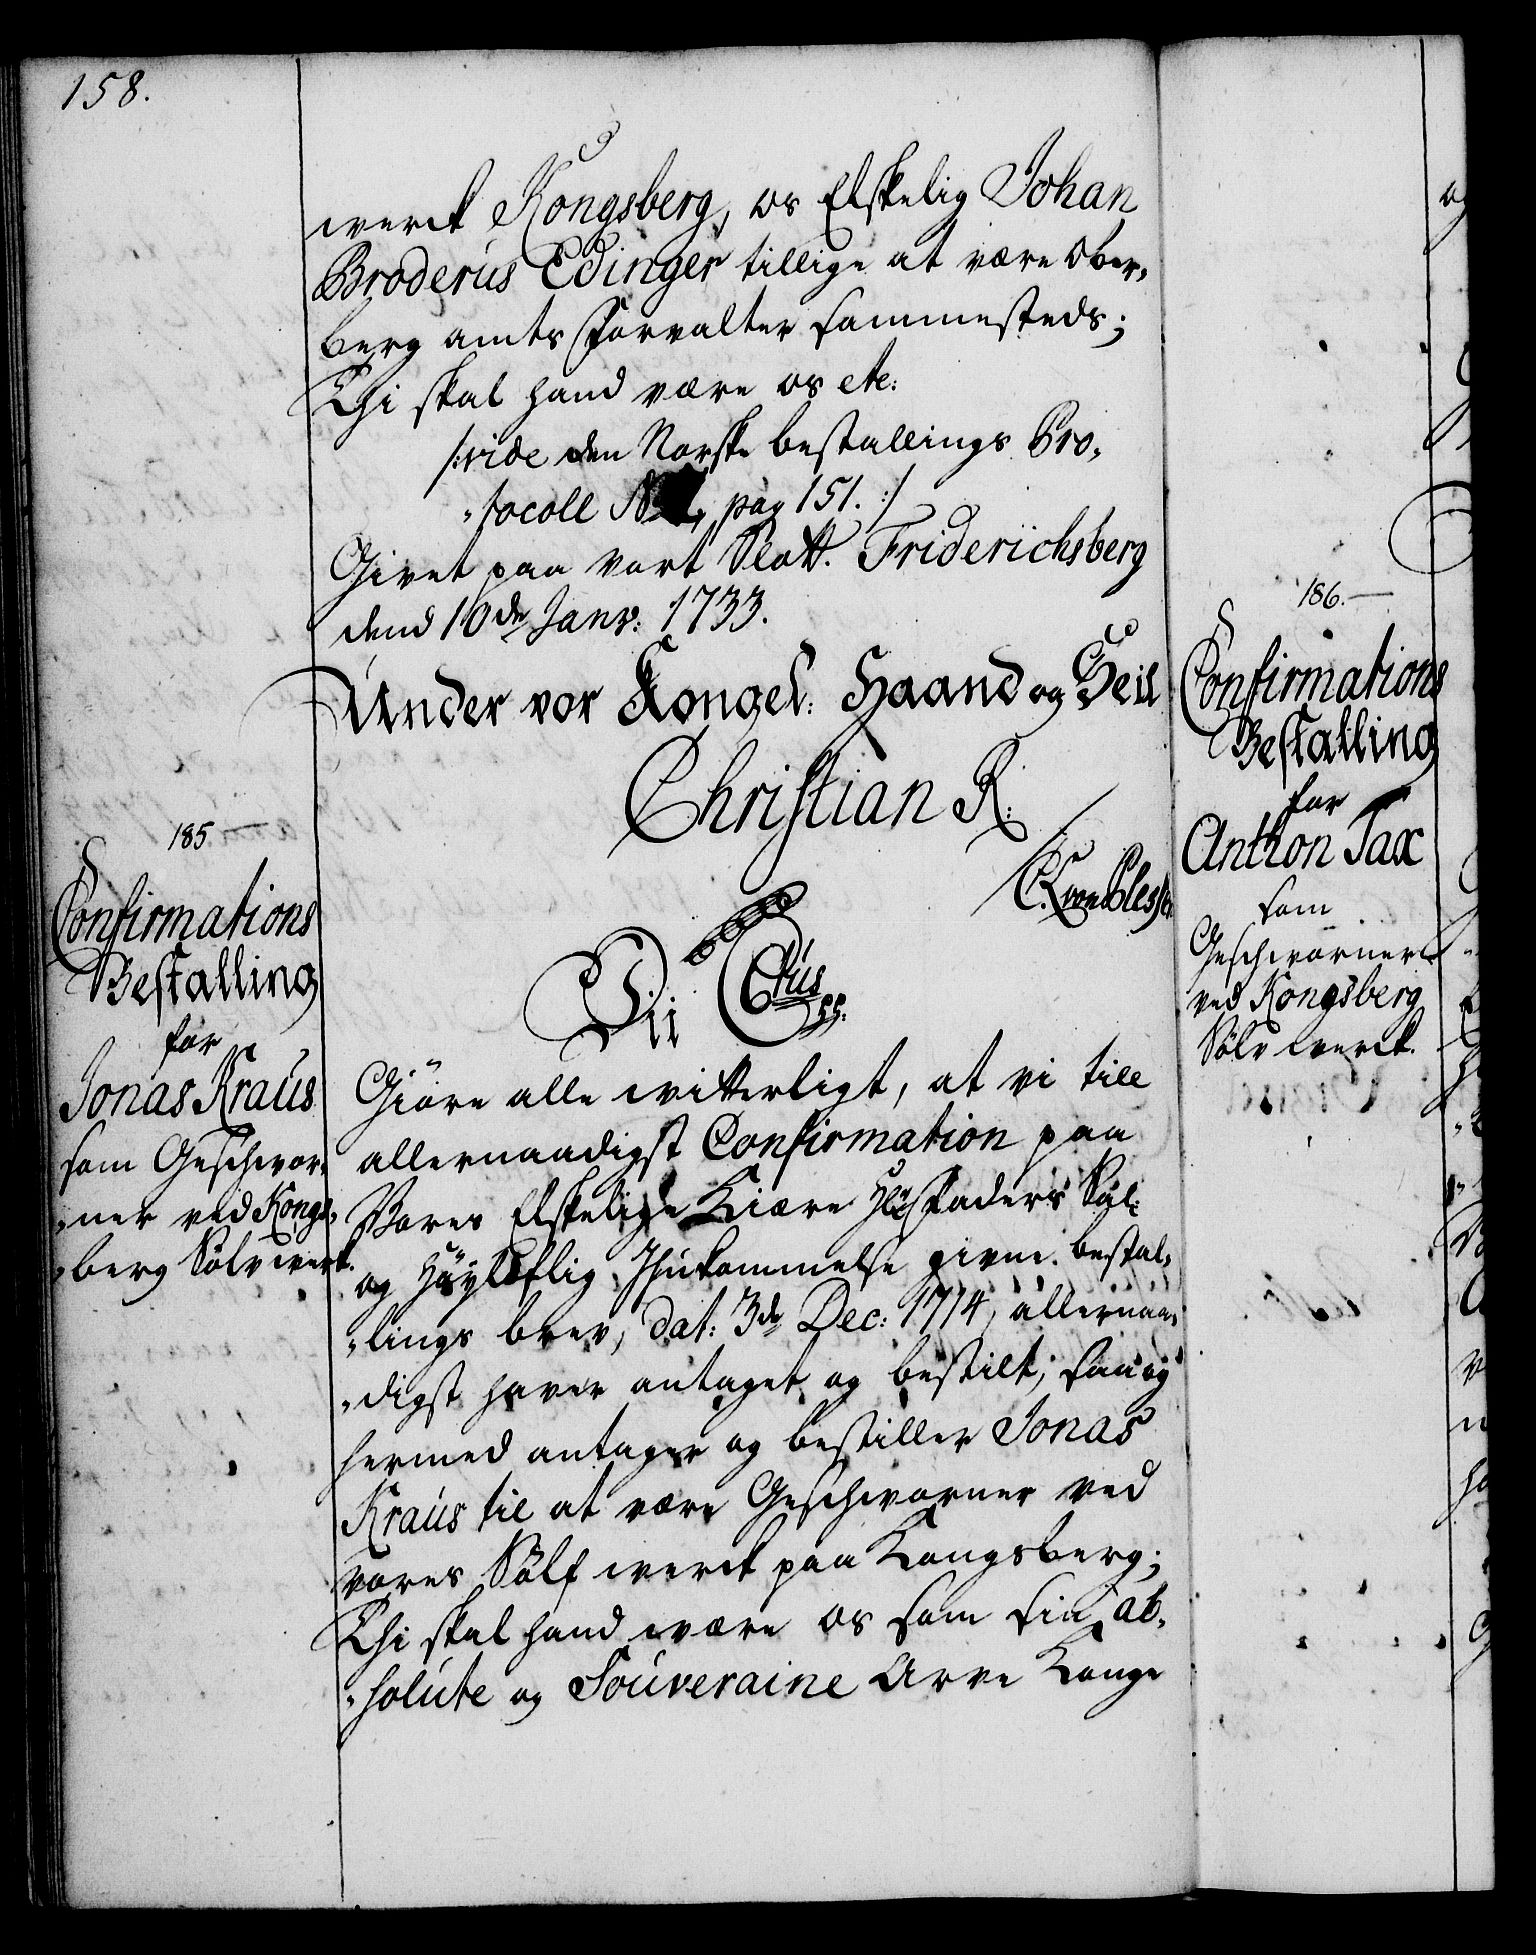 158.
werck Kongsberg, os Elskelig Johan
Broderus Edinger tillige at være Ober-
berg amts Forvalter sammesteds;
Thi skal hand være os etc:
/:vide den Norske bestallings Pro-
-tocoll pag 151. :/
Givet paa vort Slott. Friderichsberg
dend 10de Janv: 1733.
Under vor Kongel: Haand og Seil
Christian R:
185.
Confirmations
Bestalling
for
Jonas Kraus
som Geschwor-
-ner ved Kongs-
-berg Sølvwerk.
Vii Ctus pp.
Giøre alle witterligt, at vi till
allernaadigst Confirmation paa
Vores Elskelige Kiære Hr Faders Sal:
og Høyloflig Ihukommelse givne bestal-
-lings brev, dat: 3de Dec: 1714, allernaa-
-digst haver antaget og bestilt, saa og
hermed antager og bestiller Jonas
Kraus til at være Geschworner ved
vores Sölf werck paa Kongsberg;
Thi skal hand være os som sin ab-
-solute og Souveraine Arve Konge
186.
Confirmations
Bestalling
for
Anthon Tax
som
Geschworner
ved Kongsberg
Sölv werck.